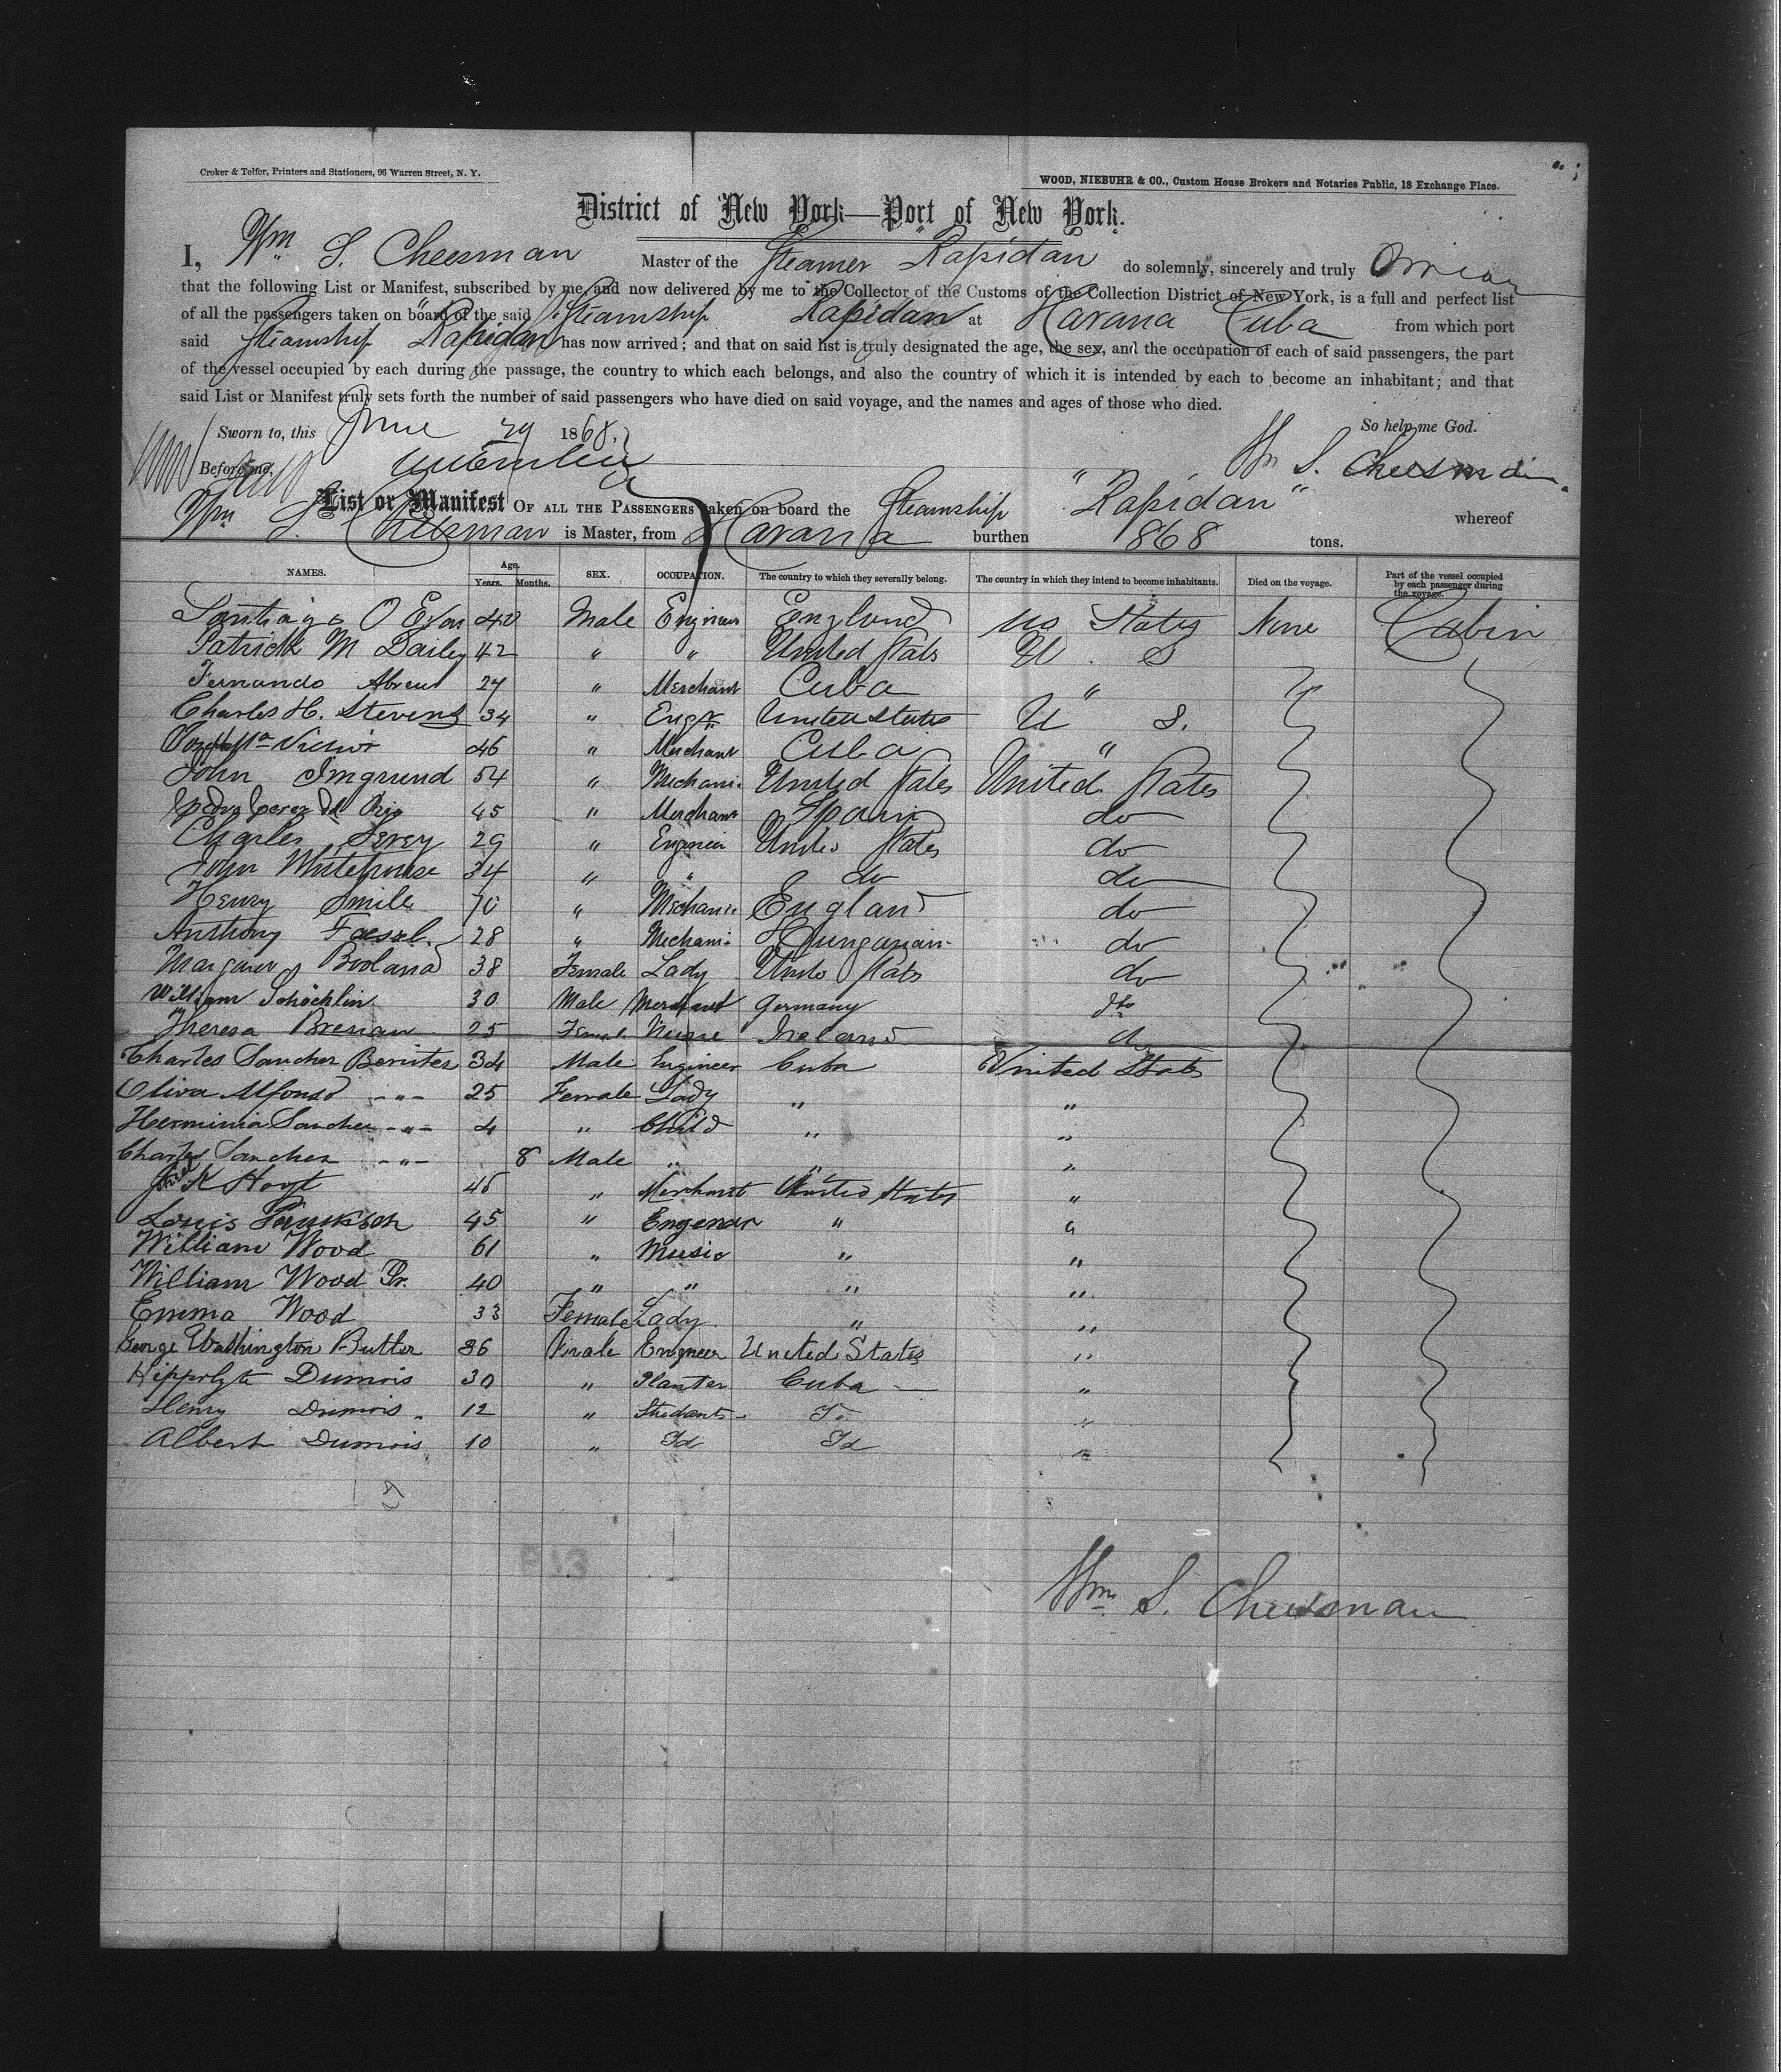 Croker & Telfer, Printers and Stationers, 96 Warren Street, N. Y.
WOOD, NIEBUHR & CO., Custom House Brokers and Notaries Public, 18 Exchange Place.
District of New York—Port of New York.
I, Wm S. Cheesman Master of the Steamer "Rapidan" do solemnly, sincerely and truly
that the following List or Manifest, subscribed by me, and now delivered by me to the Collector of the Customs of the Collection District of New York, is a full and perfect list
of all the passengers taken on board of the said Steamship Rapidan at Havana Cuba from which port
said Steamship Rapidan has now arrived; and that on said list is truly designated the age, the sex, and the occupation of each of said passengers, the part
of the vessel occupied by each during the passage, the country to which each belongs, and also the country of which it is intended by each to become an inhabitant; and that
said List or Manifest truly sets forth the number of said passengers who have died on said voyage, and the names and ages of those who died.
Sworn to, this June 29 1868. So help me God.
Before me, Wm S. Cheesman
List or Manifest OF ALL THE PASSENGERS taken on board the Steamship "Rapidan" whereof
Wm S. Cheesman is Master, from Havana burthen 868 tons.
NAMES. Age. Years. Months. SEX. OCCUPATION. The country to which they severally belong. The country in which they intend to become inhabitants. Died on the voyage. Part of the vessel occupied by each passenger during the voyage.
Santiago O 40 Male Engineer England US States None Cabin
Patrick M Dailey 42 " " United Stats U. S
Fernando Abreu 27 " Merchant Cuba "
Charles H. Stevens 34 " Engr United States U S.
46 " Merchant Cuba "
John Imgrund 54 " Mechani United States United States
Pedro Perez del Rio 45 " Merchant Spain do
Charles 29 " Engineer United States do
John Whitehouse 34 " " do do
Henry Smile 70 " Mechanic England do
Anthony 28 " Mechani Hungarian do
Margaret Boland 38 Female Lady United Stats do
William Schöchlin 30 Male Merchant Germany do
Theresa Bresnan 25 Female Nurse Ireland do
Charles Sanchez Benitez 34 Male Engineer Cuba United States
Oliva Alfonso -"- 25 Female Lady " "
Herminia Sanchez -"- 4 " Child " "
Charles Sanchez -"- 8 Male " " "
K Hoyt 45 " Merchant United States "
Louis 45 " Engenear " "
William Wood 61 " Music " "
William Wood Jr. 40 " " " "
Emma Wood 33 Female Lady " "
George Washington Butler 36 Male Engineer United States "
Hippolyte Dumois 30 " Planter Cuba "
Henry Dumois 12 " Students "
Albert Dumois 10 " Id Id "
Wm S. Cheesman